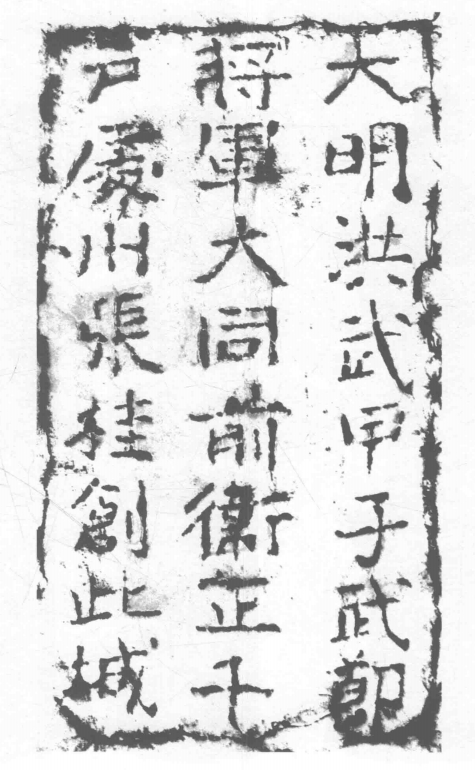 大明洪武甲子武節
將軍大同前衛正千
戶處州張桂創此城